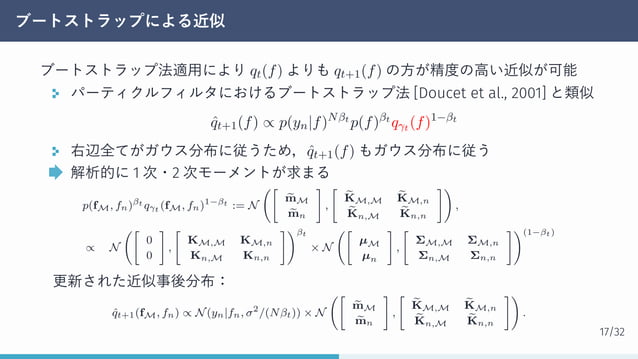 ブートストラップによる近似
ブートストラップ法適用により q_t(f) よりも q_{t+1}(f) の方が精度の高い近似が可能
パーティクルフィルタにおけるブートストラップ法 [Doucet et al., 2001] と類似
\hat{q}_{t+1}(f) ∝ p(y_n|f)^{Nβ_t} p(f)^{β_t} q_{γ_t}(f)^{1−β_t}
右辺全てがガウス分布に従うため，\hat{q}_{t+1}(f) もガウス分布に従う
解析的に 1 次・2 次モーメントが求まる
p(f_M, f_n)^{β_t} q_{γ_t}(f_M, f_n)^{1−β_t} := N ( [ \tilde{m}_M ; \tilde{m}_n ], [ \tilde{K}_{M,M} \tilde{K}_{M,n} ; \tilde{K}_{n,M} \tilde{K}_{n,n} ] ) ,
∝ N ( [ 0 ; 0 ], [ K_{M,M} K_{M,n} ; K_{n,M} K_{n,n} ] )^{β_t} × N ( [ μ_M ; μ_n ], [ Σ_{M,M} Σ_{M,n} ; Σ_{n,M} Σ_{n,n} ] )^{(1−β_t)}
更新された近似事後分布：
\hat{q}_{t+1}(f_M, f_n) ∝ N(y_n|f_n, σ^2/(Nβ_t)) × N ( [ \tilde{m}_M ; \tilde{m}_n ], [ \tilde{K}_{M,M} \tilde{K}_{M,n} ; \tilde{K}_{n,M} \tilde{K}_{n,n} ] ) .
17/32